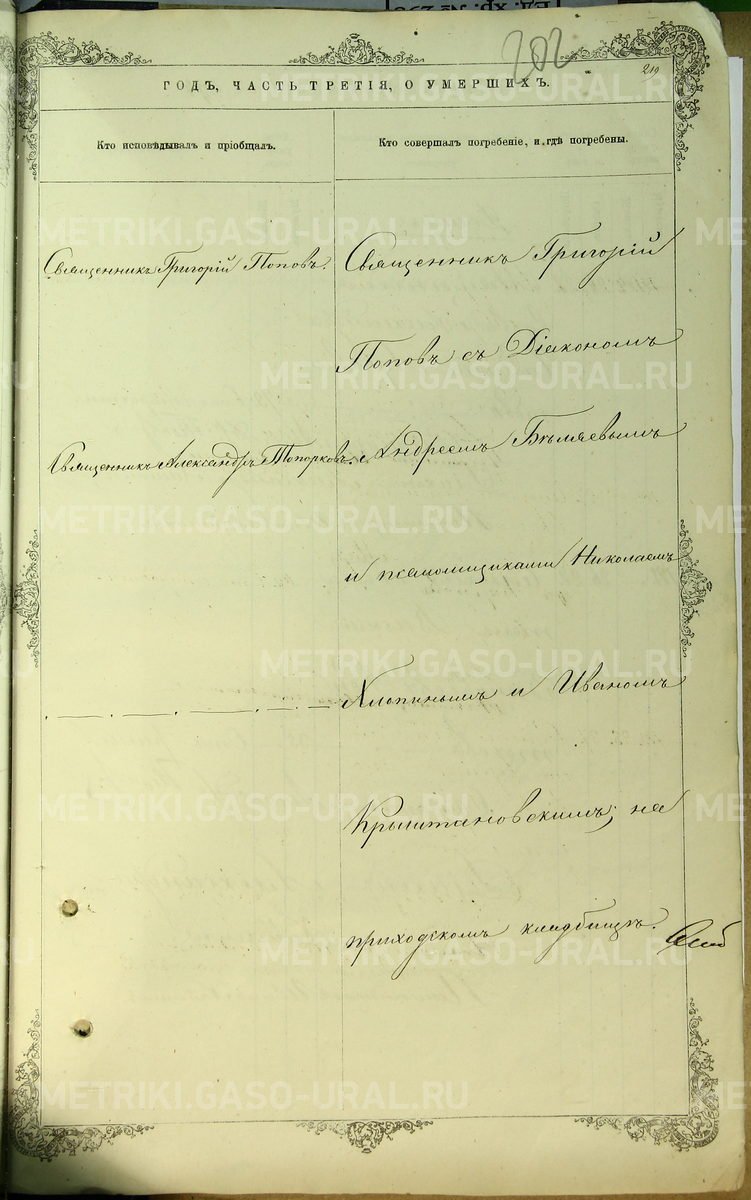 202
219
ГОДЪ, ЧАСТЬ ТРЕТІЯ, О УМЕРШИХЪ.
Кто исповѣдывалъ и пріобщалъ.
Кто совершалъ погребеніе, и гдѣ погребены.
Священникъ Григорій Поповъ.
Священникъ Александръ Топорковъ.
Священникъ Григорій
Поповъ съ Діакономъ
Андреемъ Бѣляевымъ
и псаломщиками Николаемъ
Хлопинымъ и Иваномъ
Крыштановскимъ; на
приходскомъ кладбищѣ.
METRIKI.GASO-URAL.RU